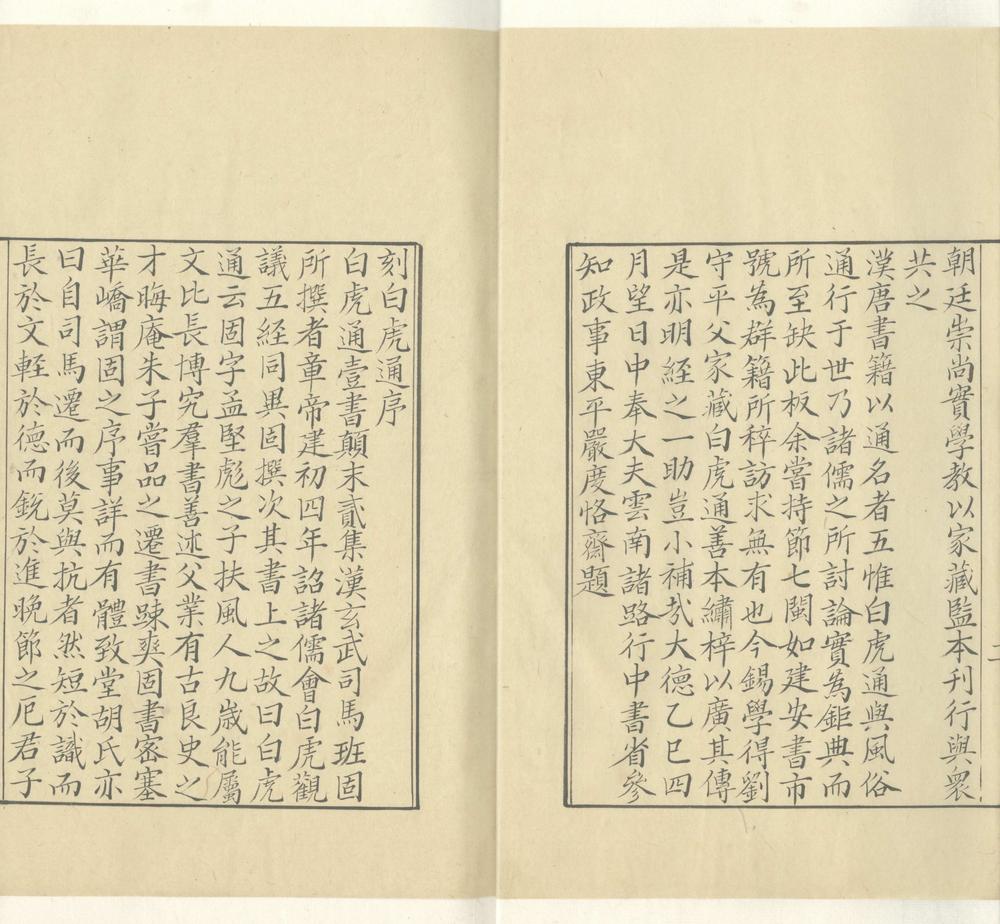 朝廷崇尚實學教以家藏監本刊行與衆
共之
漢唐書籍以通名者五惟白虎通與風俗
通行于世乃諸儒之所討論實為鉅典而
所至缺此板余嘗持節七閩如建安書市
號為群籍所稡訪求無有也今錫學得劉
守平父家藏白虎通善本繡梓以廣其傳
是亦明經之一助豈小補㢤大德乙巳四
月望日中奉大夫雲南諸路行中書省參
知政事東平嚴度恪齋題
刻白虎通序
白虎通壹書顛末貳集漢玄武司馬班固
所撰者章帝建初四年詔諸儒會白虎觀
議五經同異固撰次其書上之故曰白虎
通云固字孟堅彪之子扶風人九歲能屬
文比長博究羣書善述父業有古良史之
才晦庵朱子嘗品之遷書踈爽固書宻塞
華嶠謂固之序事詳而有體致堂胡氏亦
曰自司馬遷而後莫與抗者然短於識而
長於文輕於德而銳於進晚節之厄君子